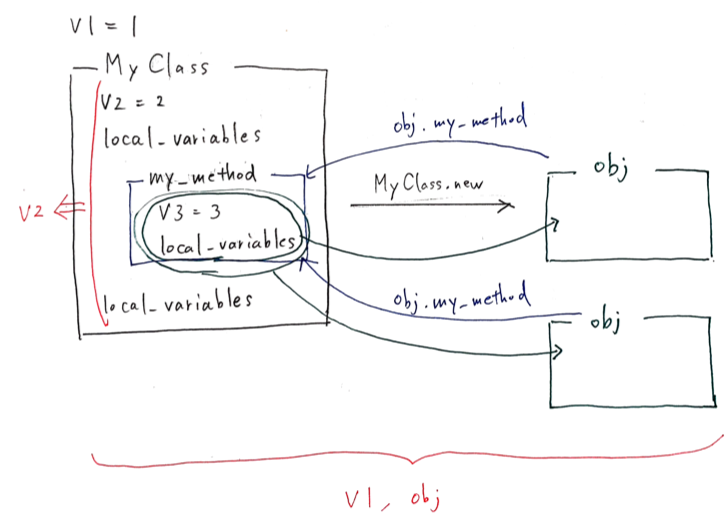 v1 = 1
My Class
v2 = 2
local_variables
my_method
v3 = 3
local_variables
local_variables
v2
obj.my_method
MyClass.new
obj
obj.my_method
obj
v1, obj